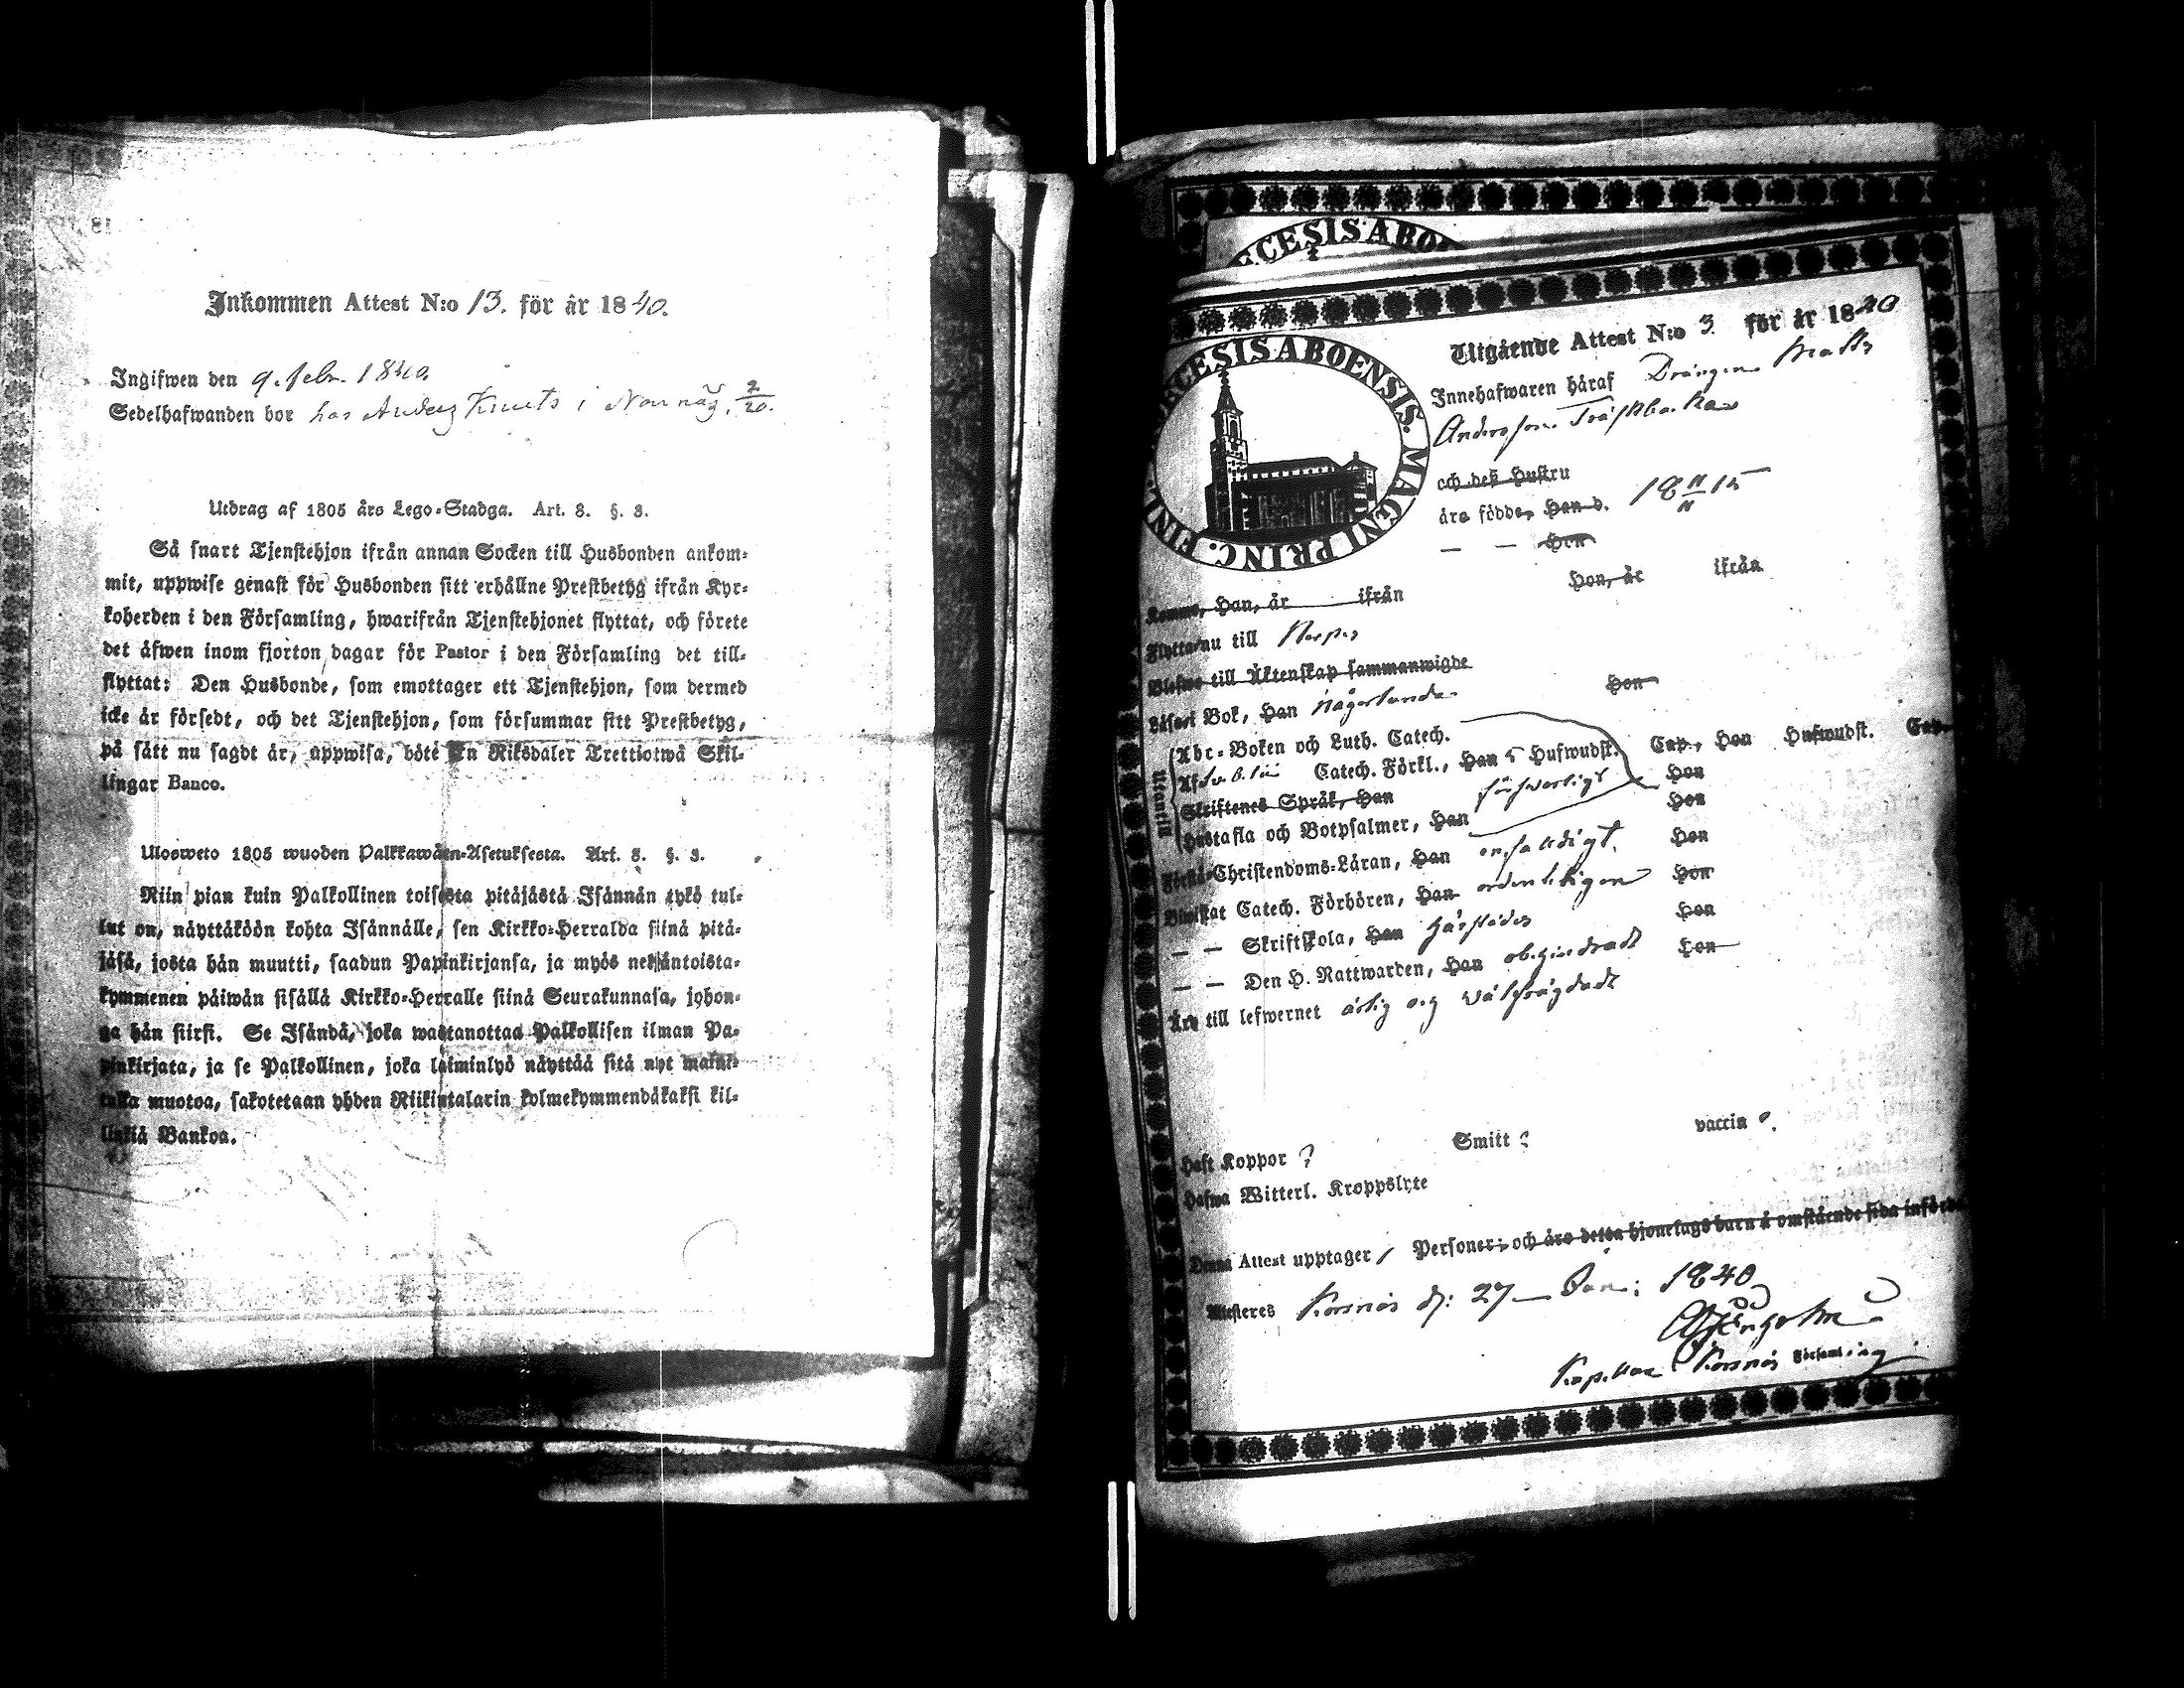 Inkommen Attest N:o 13. för år 1840.
Ingifwen den 9. febr. 1840.
Sedelhafwanden bor hos Anders Knuts i Norrnäs, 2/20.
Utdrag af 1805 års Lego-Stadga. Art. 3. §. 3.
Så snart Tjenstehjon ifrån annan Socken till Husbonden ankom-
mit, uppwise genast för Husbonden sitt erhållne Prestbetyg ifrån Kyr-
koherden i den Församling, hwarifrån Tjenstehjonet flyttat, och förete
det äfwen inom fjorton dagar för Pastor i den Församling det till-
flyttat: Den Husbonde, som emottager ett Tjenstehjon, som dermed
icke är försedt, och det Tjenstehjon, som försummar sitt Prestbetyg,
på sätt nu sagdt är, uppwisa, böte En Riksdaler Trettiotwå Skil-
lingar Banco.
Ulosweto 1805 wuoden Palkkawäen-Asetuksesta. Art. 3. §. 3.
Niin pian kuin Palkollinen toisesta pitäjästä Isännän tykö tul-
lut on, näyttäköön kohta Isännälle, sen Kirkko-Herralda siinä pitä-
jäsä, josta hän muutti, saadun Papinkirjansa, ja myös neljäntoista-
kymmenen päiwän sisällä Kirkko-Herralle siinä Seurakunnasa, johon-
ga hän siirsi. Se Isändä, joka wastanottaa Palkollisen ilman Pa-
pinkirjata, ja se Palkollinen, joka laiminlyö näyttää sitä nyt maini-
tulla muotoa, sakotetaan yhden Riikintalarin kolmekymmendäkaksi kil-
linkiä Bankoa.
ECESIS ABO
DIOECESIS ABOENSIS. MAGNI PRINC. FINL.
Utgående Attest N:o 3 för år 1840
Innehafwaren häraf Drängen Matts
Andersson Träskbacka
och dess Hustru
äro födde, Han d. 18 11/11 15
— — Hon
Komne, Han, år ifrån Hon, år ifrån
Flytta nu till Nerpes
Blefwe till Äktenskap sammanwigde
Läser i Bok, Han någorlunda Hon
Utantill
Abc-Boken och Luth. Catech.
Af Catech. Förkl., Han 5 Hufwudst. Cap., Hon Hufwudst. Cap.
Skriftenes Språk, Han försvarligt Hon
Hustafla och Botpsalmer, Han Hon
Förstå Christendoms-Läran, Han enfaldigt Hon
Bewistat Catech. Förhören, Han ordentligen Hon
— — Skriftskola, Han härstädes Hon
— — Den H. Nattwarden, Han obehindradt Hon
Äro till lefwernet ärlig och välfrägdadt
Haft Koppor ? Smitt ? vaccin ?.
Hafwa Witterl. Kroppslyte
Denna Attest upptager 1 Personer; och äro detta hjonelags barn å omstående sida införde
Attesteres Korsnäs d: 27 Jan: 1840
Kapellan i Korsnäs Församling